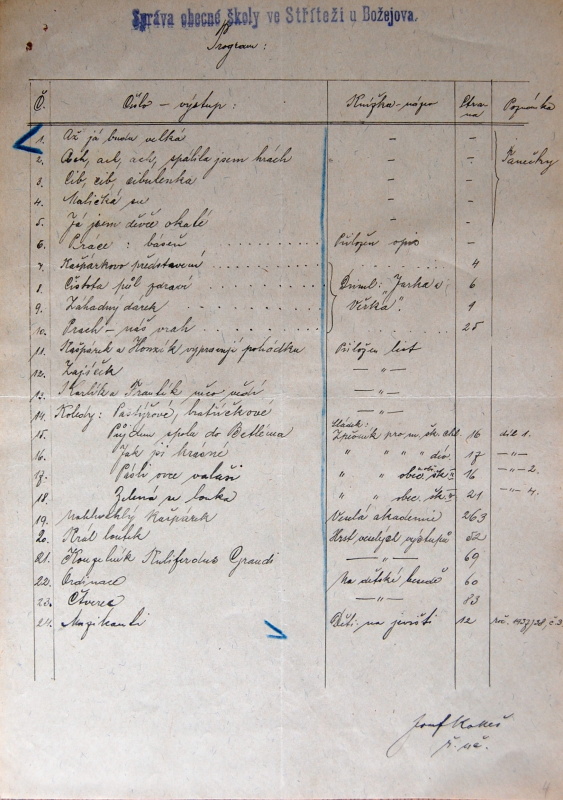 Správa obecné školy ve Stříteži u Božejova.
Program:
Č. Číslo – výstup: Knížka – název Strana Poznámka
1. Až já budu velká – –
2. Ach, ach, ach, spálila jsem hrách – – Tanečky
3. Cib, cib, cibulenka – –
4. Maličká su – –
5. Já jsem děvče okaté – –
6. Práce: báseň Přiložen opis –
7. Kašpárkovo představení 4
8. Čistota půl zdraví "Jarka a 6
9. Záhadný dárek Věrka". 9
10. Prach – náš vrah 25
11. Kašpárek a Honzík vypravují pohádku Přiložen list
12. Zajíček — „ —
13. Karlík a Frantík — „ —
14. Koledy: Pastýřové, bratříčkové — „ —
15. Půjdem spolu do Betléma Zpěvník pro m. šk. chl. 16 díl 1.
16. Jak jsi krásné „ „ „ „ dív. 17 — „ —
17. Pásli ovce valaši „ „ obec. šk. 16 — „ — 2.
18. Zelená se louka „ „ obec. šk. 21 — „ — 4.
19. Kašpárek Veselá akademie 263
20. Král loutek Hrst veselých výstupů 52
21. — „ — 69
22. Ordinace Na dětské besedě 60
23. Čtverea — „ — 83
24. Muzikanti Děti na jevišti 12 roč. 1937/28, č. 3
Josef Kokeš
ř. uč.